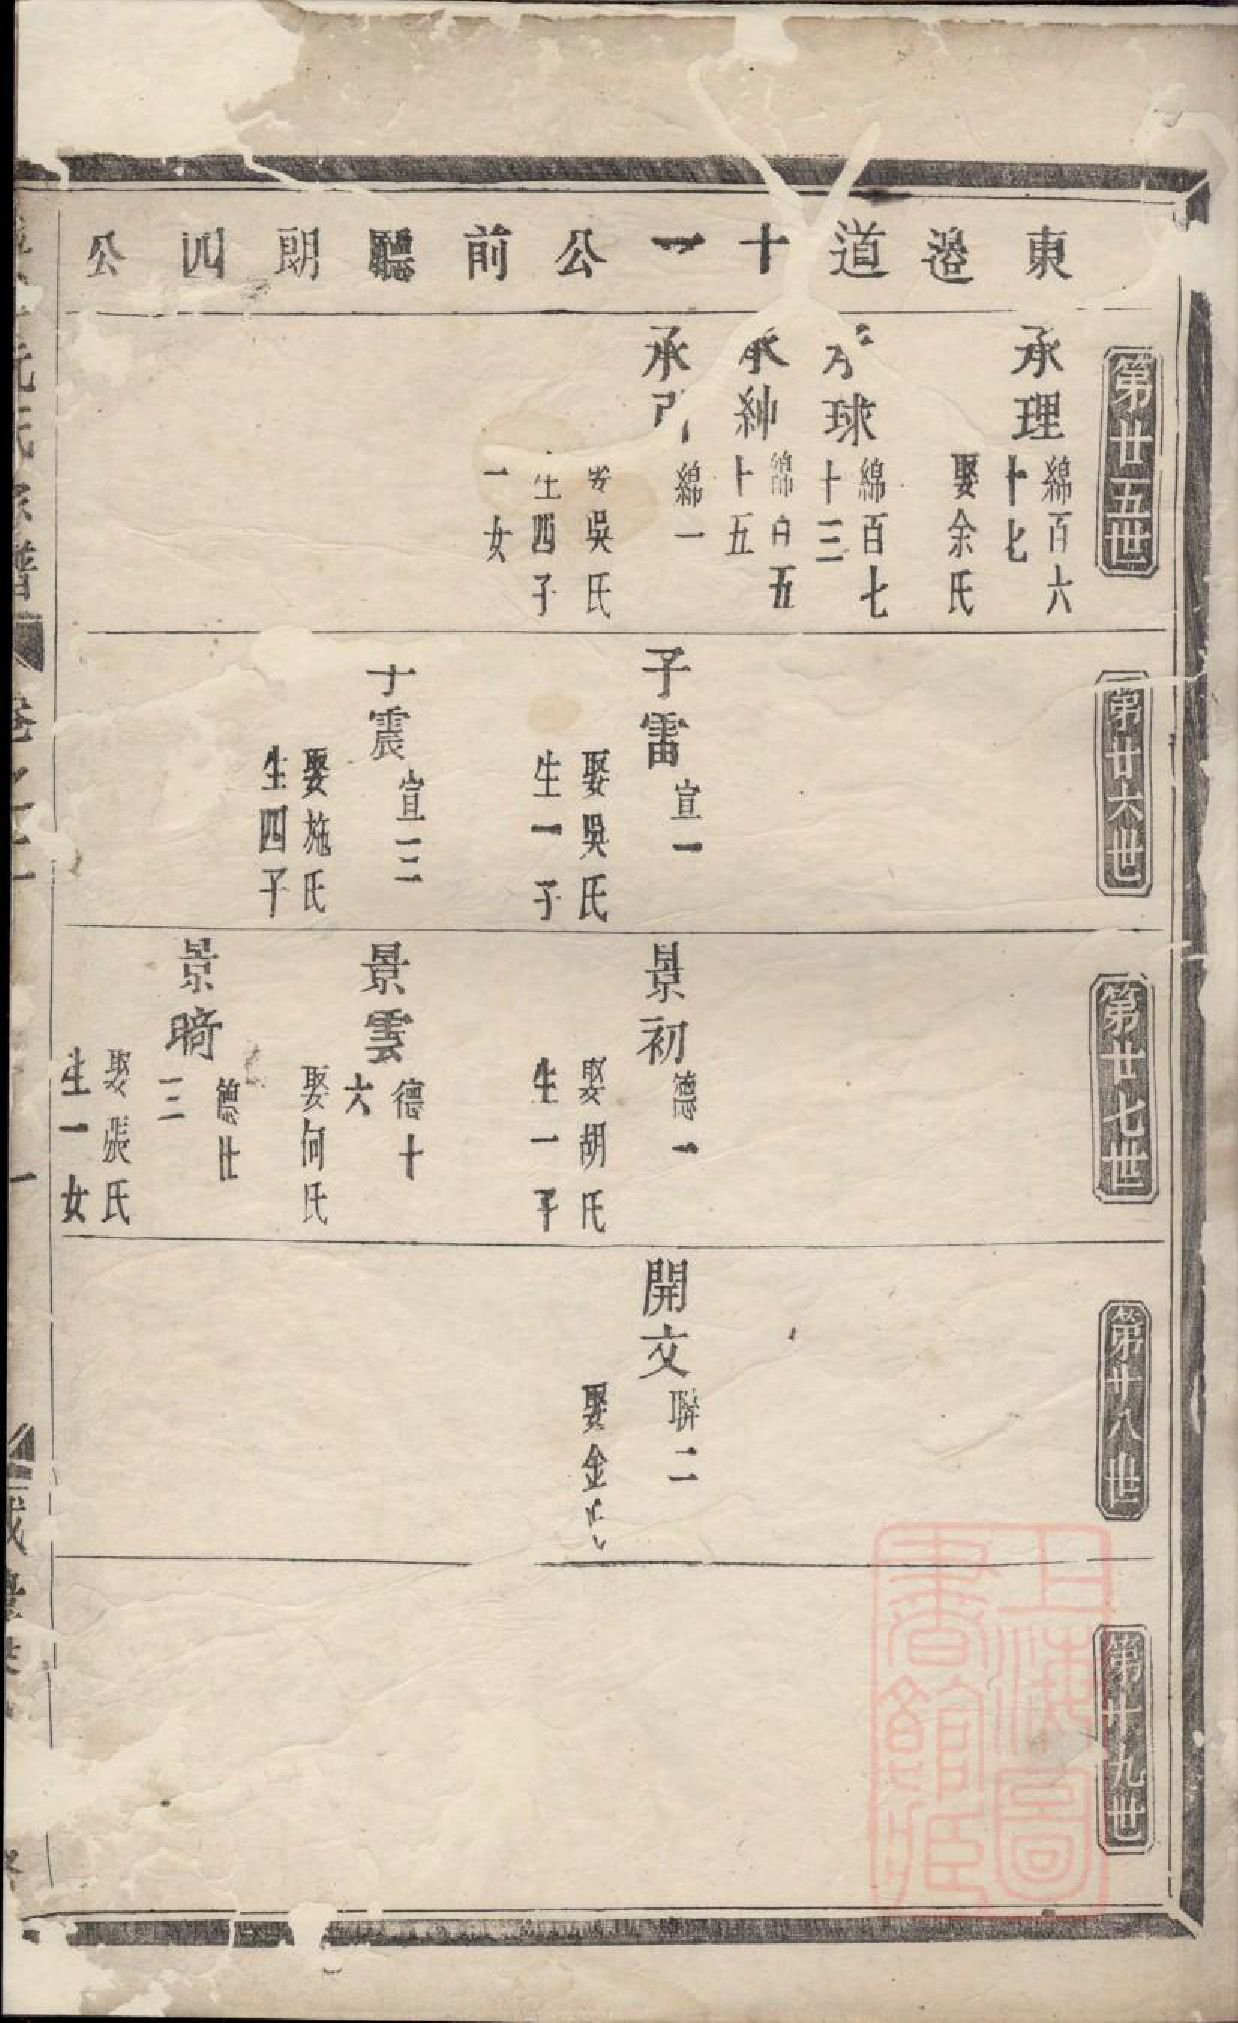 東邉道十一公前廳朗四公
第廿五世
承理
綿百六
十七
娶余氏
球
綿百七
十三
承紳
綿百五
十五
承
綿一
娶吳氏
生四子
一女
第廿六世
子雷
宣一
娶吳氏
生一子
子震
宣二
娶施氏
生四子
第廿七世
景初
德一
娶胡氏
生一子
景雲
德十
六
娶何氏
景暘
德廿
三
娶張氏
生一女
第廿八世
開文
聯二
娶金氏
第廿九世
上海圖
書館藏
阮氏家譜
卷之二
一